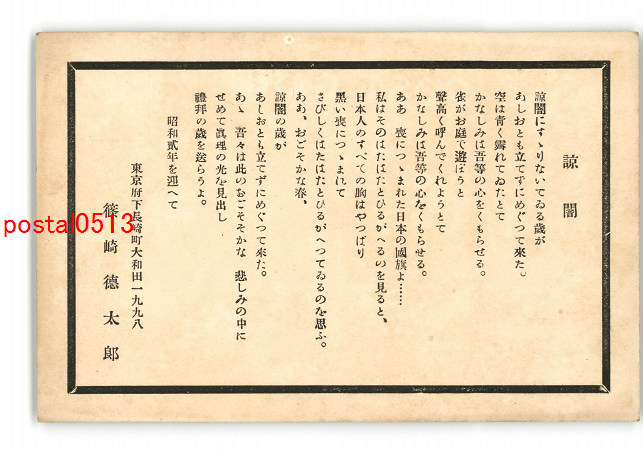 諒闇
諒闇にすゝりないてゐる歲が
あしおとも立てずにめぐつて來た。
空は靑く霽れてゐたとて
かなしみは吾等の心をくもらせる。
雀がお庭で遊ぼうと
聲高く呼んでくれようとて
かなしみは吾等の心をくもらせる。
ああ 喪につゝまれた日本の國旗よ……
私はそのはたはたとひるがへるのを見ると、
日本人のすべての胸はやつぱり
黑い喪につゝまれて
さびしくはたはたとひるがへつてゐるのを思ふ。
ああ、おごそかな春、
諒闇の歲が
あしおとも立てずにめぐつて來た。
あゝ 吾々は此のおごそかな 悲しみの中に
せめて眞理の光を見出し
禮拜の歲を送らうよ。
昭和貳年を迎へて
東京府下長崎町大和田一九九八
篠崎德太郎
postal0513